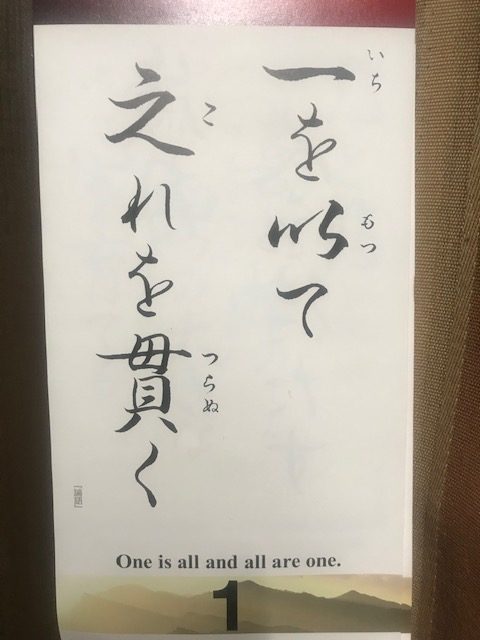 一を以て
いち
もつ
之れを貫く
こ
つらぬ
「論語」
One is all and all are one.
1